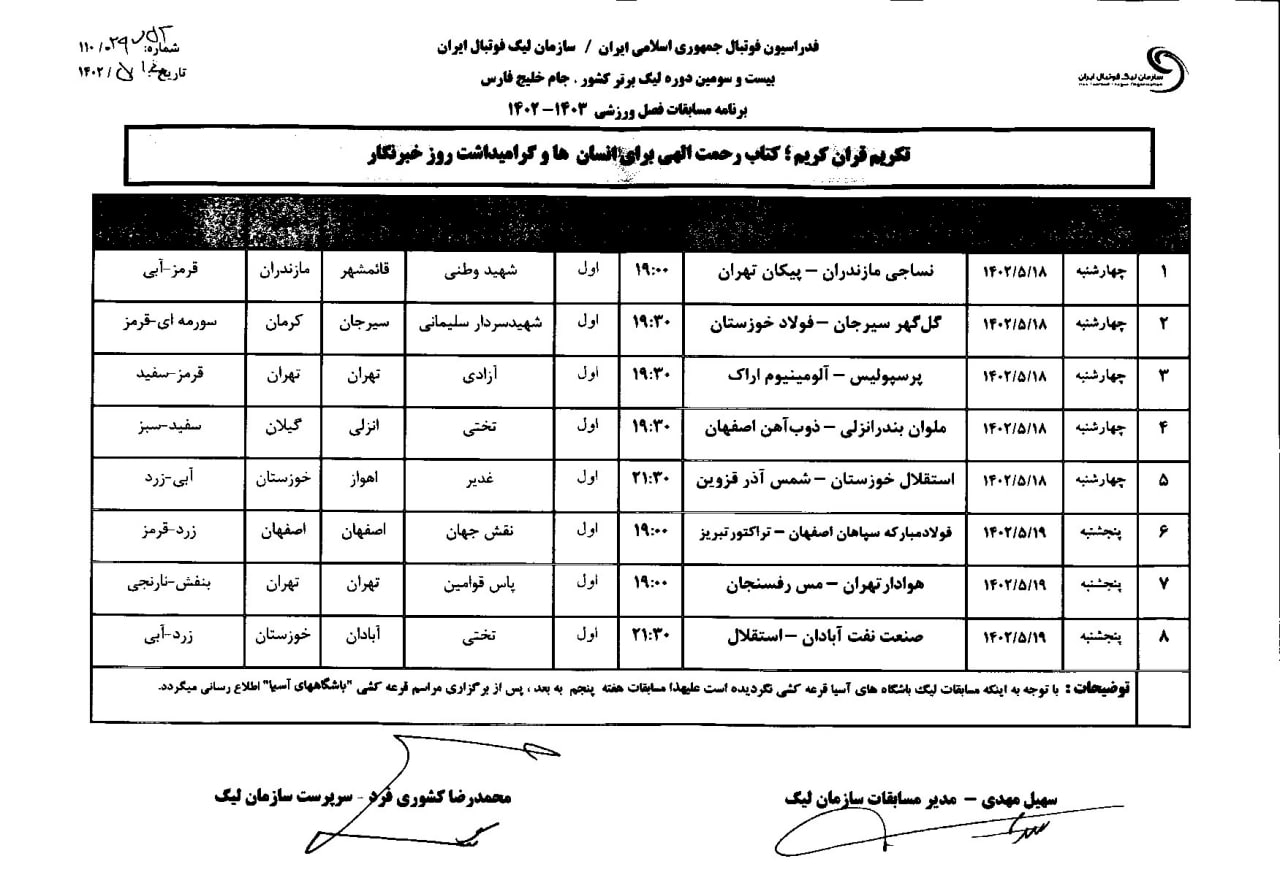 سازمان لیگ فوتبال ایران
فدراسیون فوتبال جمهوری اسلامی ایران / سازمان لیگ فوتبال ایران
بیست و سومین دوره لیگ برتر کشور ، جام خلیج فارس
برنامه مسابقات فصل ورزشی ۱۴۰۳–۱۴۰۲
شماره: ۱۱۰/۰۲۹
تاریخ ۱۴۰۲/۵/
تکریم قران کریم؛ کتاب رحمت الهی برای انسان ها و گرامیداشت روز خبرنگار
۱ چهارشنبه ۱۴۰۲/۵/۱۸ نساجی مازندران – پیکان تهران ۱۹:۰۰ اول شهید وطنی قائمشهر مازندران قرمز-آبی
۲ چهارشنبه ۱۴۰۲/۵/۱۸ گل‌گهر سیرجان – فولاد خوزستان ۱۹:۳۰ اول شهیدسردار سلیمانی سیرجان کرمان سورمه ای-قرمز
۳ چهارشنبه ۱۴۰۲/۵/۱۸ پرسپولیس – آلومینیوم اراک ۱۹:۳۰ اول آزادی تهران تهران قرمز-سفید
۴ چهارشنبه ۱۴۰۲/۵/۱۸ ملوان بندرانزلی – ذوب‌آهن اصفهان ۱۹:۳۰ اول تختی انزلی گیلان سفید-سبز
۵ چهارشنبه ۱۴۰۲/۵/۱۸ استقلال خوزستان – شمس آذر قزوین ۲۱:۳۰ اول غدیر اهواز خوزستان آبی-زرد
۶ پنجشنبه ۱۴۰۲/۵/۱۹ فولادمبارکه سپاهان اصفهان – تراکتورتبریز ۱۹:۰۰ اول نقش جهان اصفهان اصفهان زرد-قرمز
۷ پنجشنبه ۱۴۰۲/۵/۱۹ هوادارتهران – مس رفسنجان ۱۹:۰۰ اول پاس قوامین تهران تهران بنفش-نارنجی
۸ پنجشنبه ۱۴۰۲/۵/۱۹ صنعت نفت آبادان – استقلال ۲۱:۳۰ اول تختی آبادان خوزستان زرد-آبی
توضیحات : با توجه به اینکه مسابقات لیگ باشگاه های آسیا قرعه کشی نگردیده است علیهذا مسابقات هفته پنجم به بعد ، پس از برگزاری مراسم قرعه کشی "باشگاههای آسیا" اطلاع رسانی میگردد.
سهیل مهدی – مدیر مسابقات سازمان لیگ
محمدرضا کشوری فرد - سرپرست سازمان لیگ